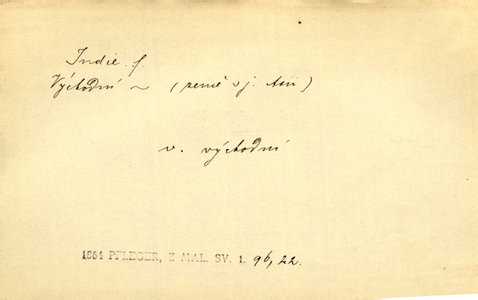 Indie f.
Východní ~ (země v j. Asii)
v. východní
1864 PFLEGER, Z MAL. SV. 1. 96, 22.